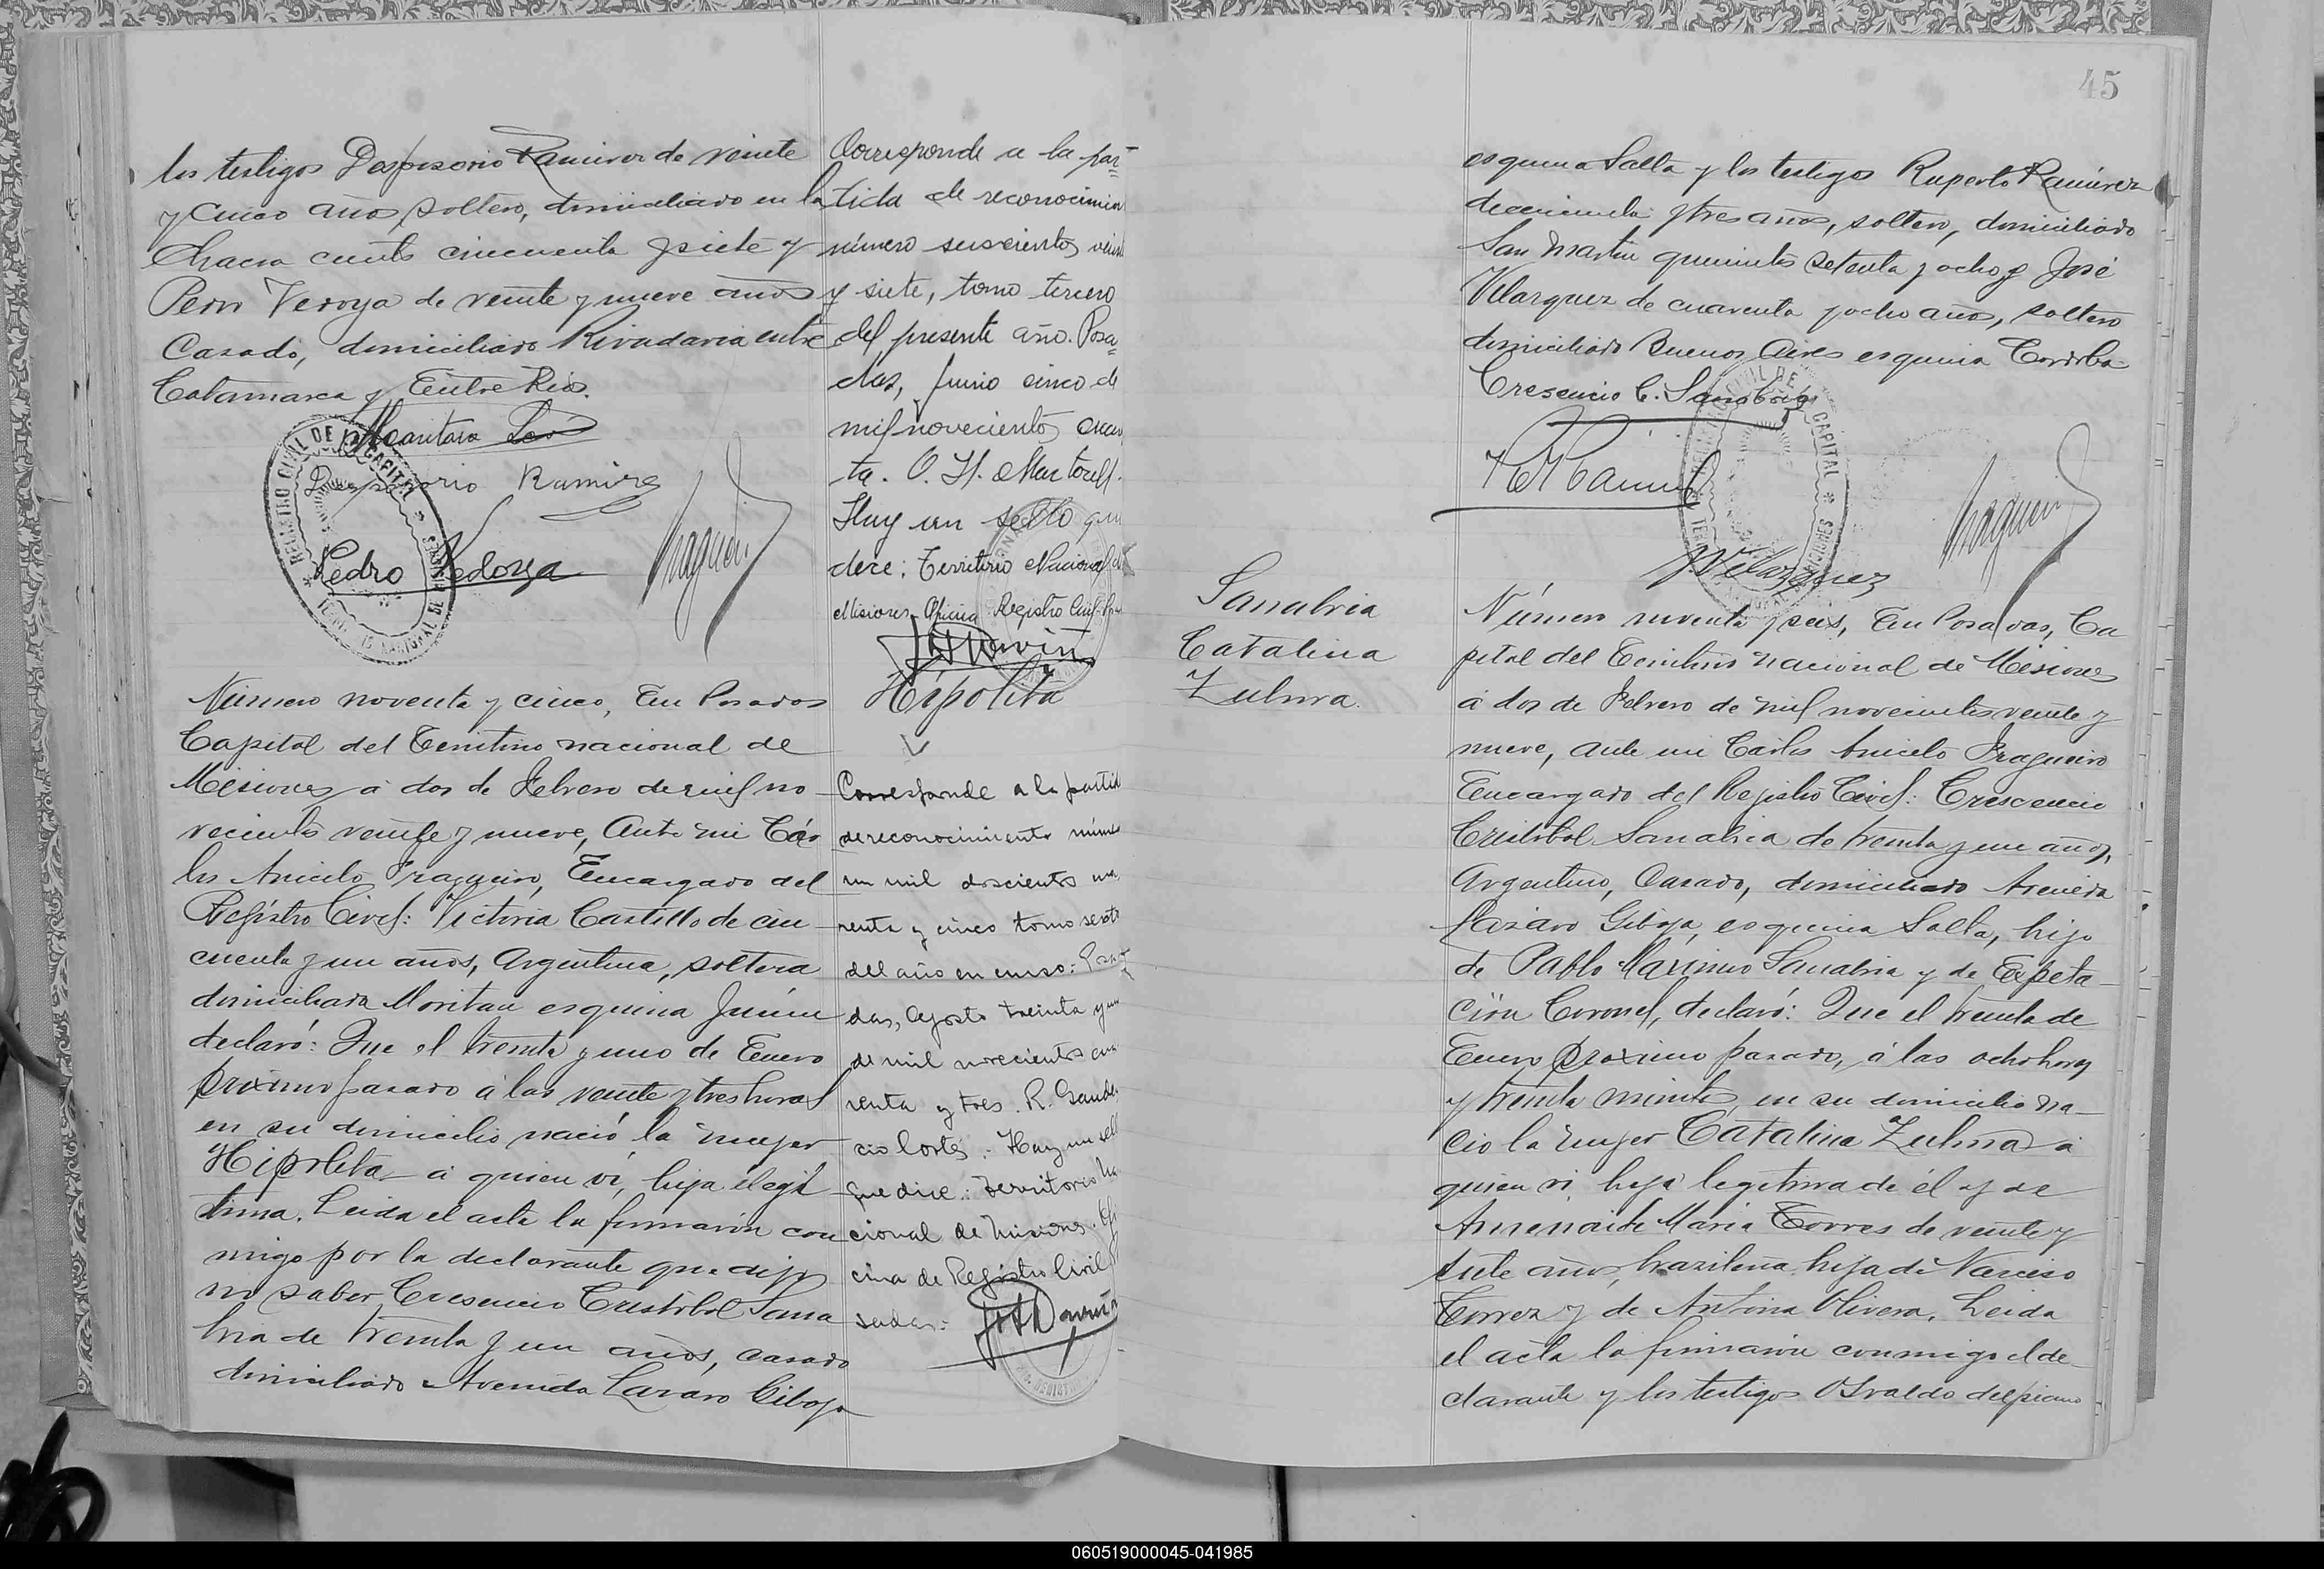 los testigos Desposorio Ramirez de veinte
y cinco años soltero, domiciliado en la
Chacra ciento cincuenta y siete y
Pedro Vedoya de veinte y nueve años
Casado, domiciliado Rivadavia entre
Catamarca y Entre Rios.
Alcantara
Desposorio Ramirez
Pedro Vedoya
Número noventa y cinco, En Posadas
Capital del Territorio nacional de
Misiones a dos de Febrero de mil no
vecientos veinte y nueve, Ante mi Cár
los Aniceto Fragueiro, Encargado del
Registro Civil: Victoria Castillo de cin
cuenta y un años, Argentina, soltera
domiciliada esquina Junin
declaró: Que el treinta y uno de Enero
próximo pasado á las veinte y tres horas
en su domicilio nació la mujer
Hipolita a quien ví, hija ilegi
tima. Leida el acta la firmaron con
migo por la declarante que dijo
no saber Cresencio Cristobal Sana
bria de treinta y un años, casado
domiciliado Avenida Lazaro Giboja
Corresponde a la par
tida de reconocimien
número seiscientos vein
y siete, tomo tercero
del presente año. Posa
das, junio cinco de
mil novecientos cuar
ta. O. H. Martorell.
Hay un sello que
dice: Territorio Nacional de
Misiones. Oficina Registro Civil
Hipolita
Corresponde a la partid
de reconocimiento núme
un mil doscientos
renta y cinco tomo sexto
del año en curso: Posa
das, Agosto treinta y un
de mil novecientos cua
renta y tres. R.
cio Cortés. Hay un sell
que dice: Territorio Na
cional de Misiones. Ofi
cina de Registro Civil
sadas:
45
esquina Salta y los testigos Ruperto Ramirez
de cincuenta y tres años, soltero, domiciliado
San Martin quinientos setenta y ocho y José
Velazquez de cuarenta y ocho años, soltero
domiciliado Buenos Aires esquina Cordoba
Cresencio C. Sanabria
J. Velazquez
Sanabria
Catalina
Zulma.
Número noventa y seis, En Posadas, Ca
pital del Territorio nacional de Misiones
á dos de Febrero de mil novecientos veinte y
nueve, ante mi Carlos Aniceto Fragueiro
Encargado del Registro Civil: Crescencio
Cristobal Sanabria de treinta y un años,
Argentino, Casado, domiciliado Avenida
Lazaro Giboja, esquina Salta, hijo
de Pablo Maximo Sanabria y de Expeta
ción Coronel, declaró: Que el treinta de
Enero próximo pasado, á las ocho horas
y treinta minutos en su domicilio na
ció la mujer Catalina Zulma a
quien ví hija legitima de él y de
Amenaide Maria Torres de veinte y
siete años, brazileña hija de Narciso
Torres y de Antonia Olivera. Leida
el acta la firmaron conmigo el de
clarante y los testigos Osvaldo delpiano
060519000045-041985